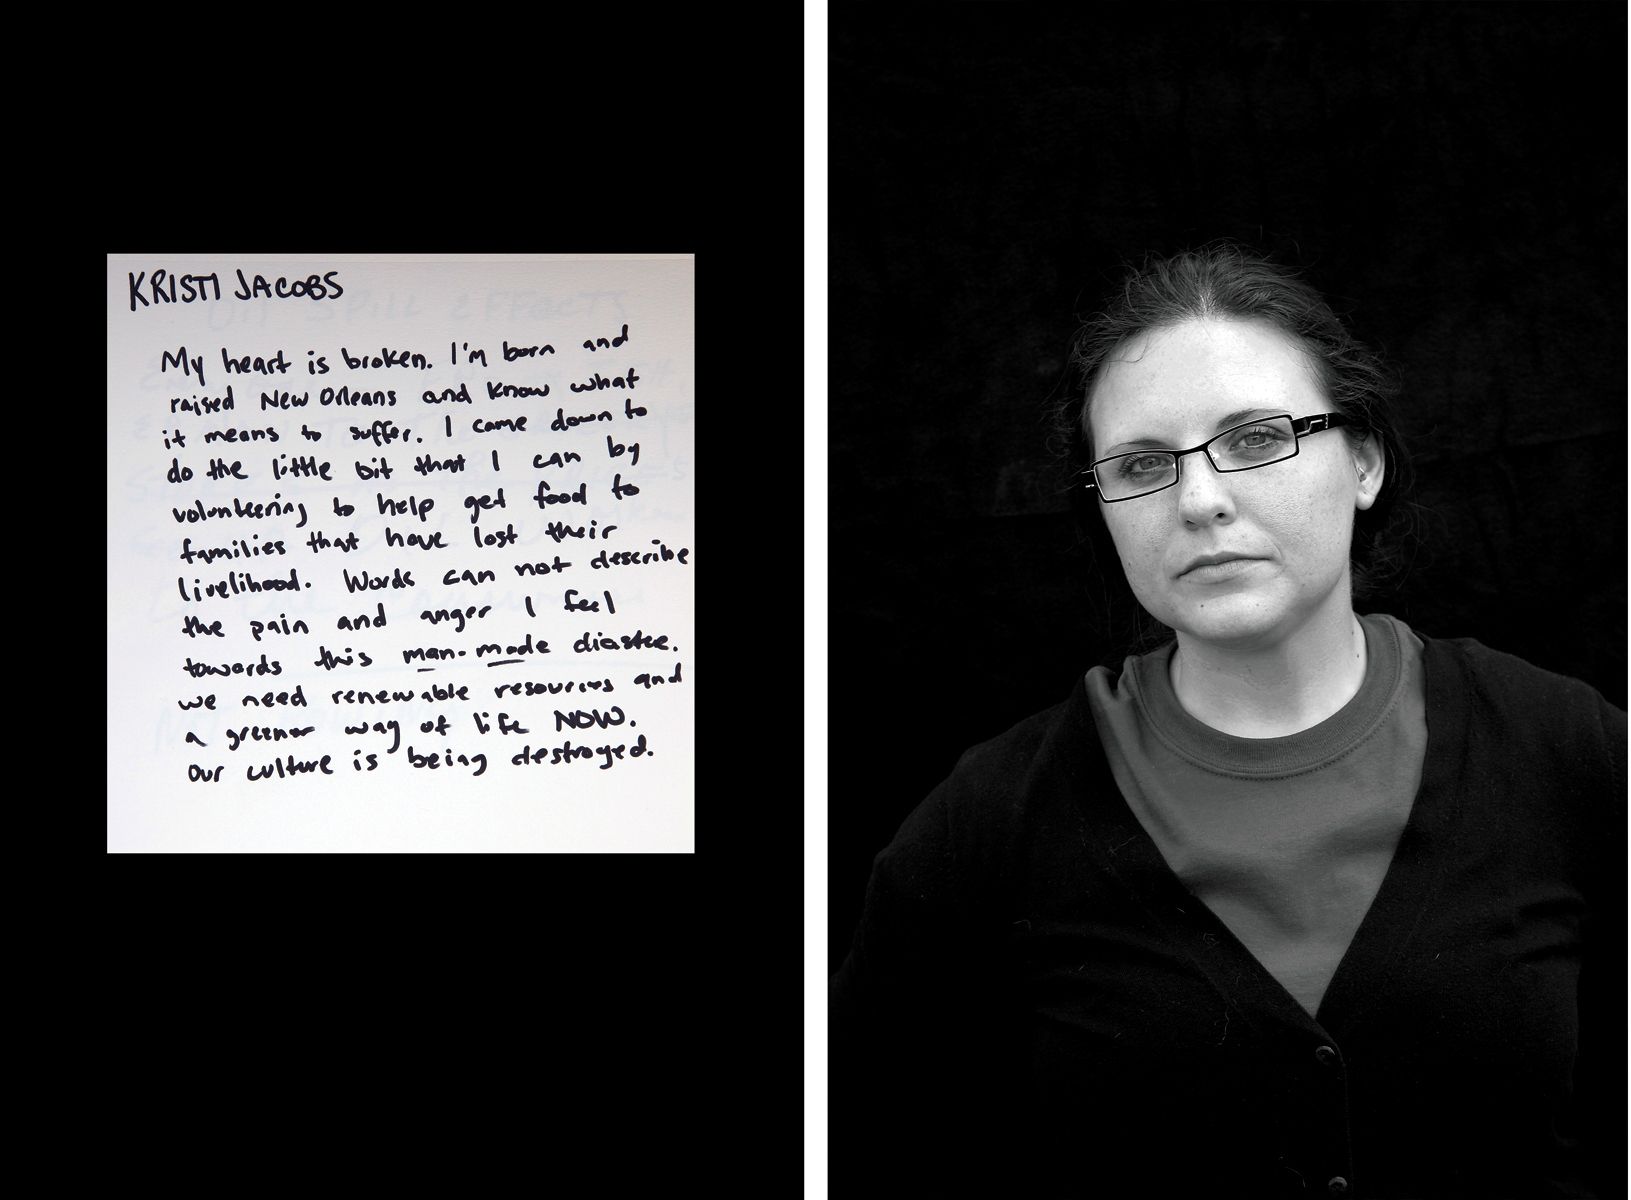 KRISTI JACOBS
My heart is broken. I'm born and
raised New Orleans and know what
it means to suffer. I came down to
do the little bit that I can by
volunteering to help get food to
families that have lost their
livelihood. Words can not describe
the pain and anger I feel
towards this man-made diastee.
we need renewable resources and
a greener way of life NOW.
Our culture is being destroyed.